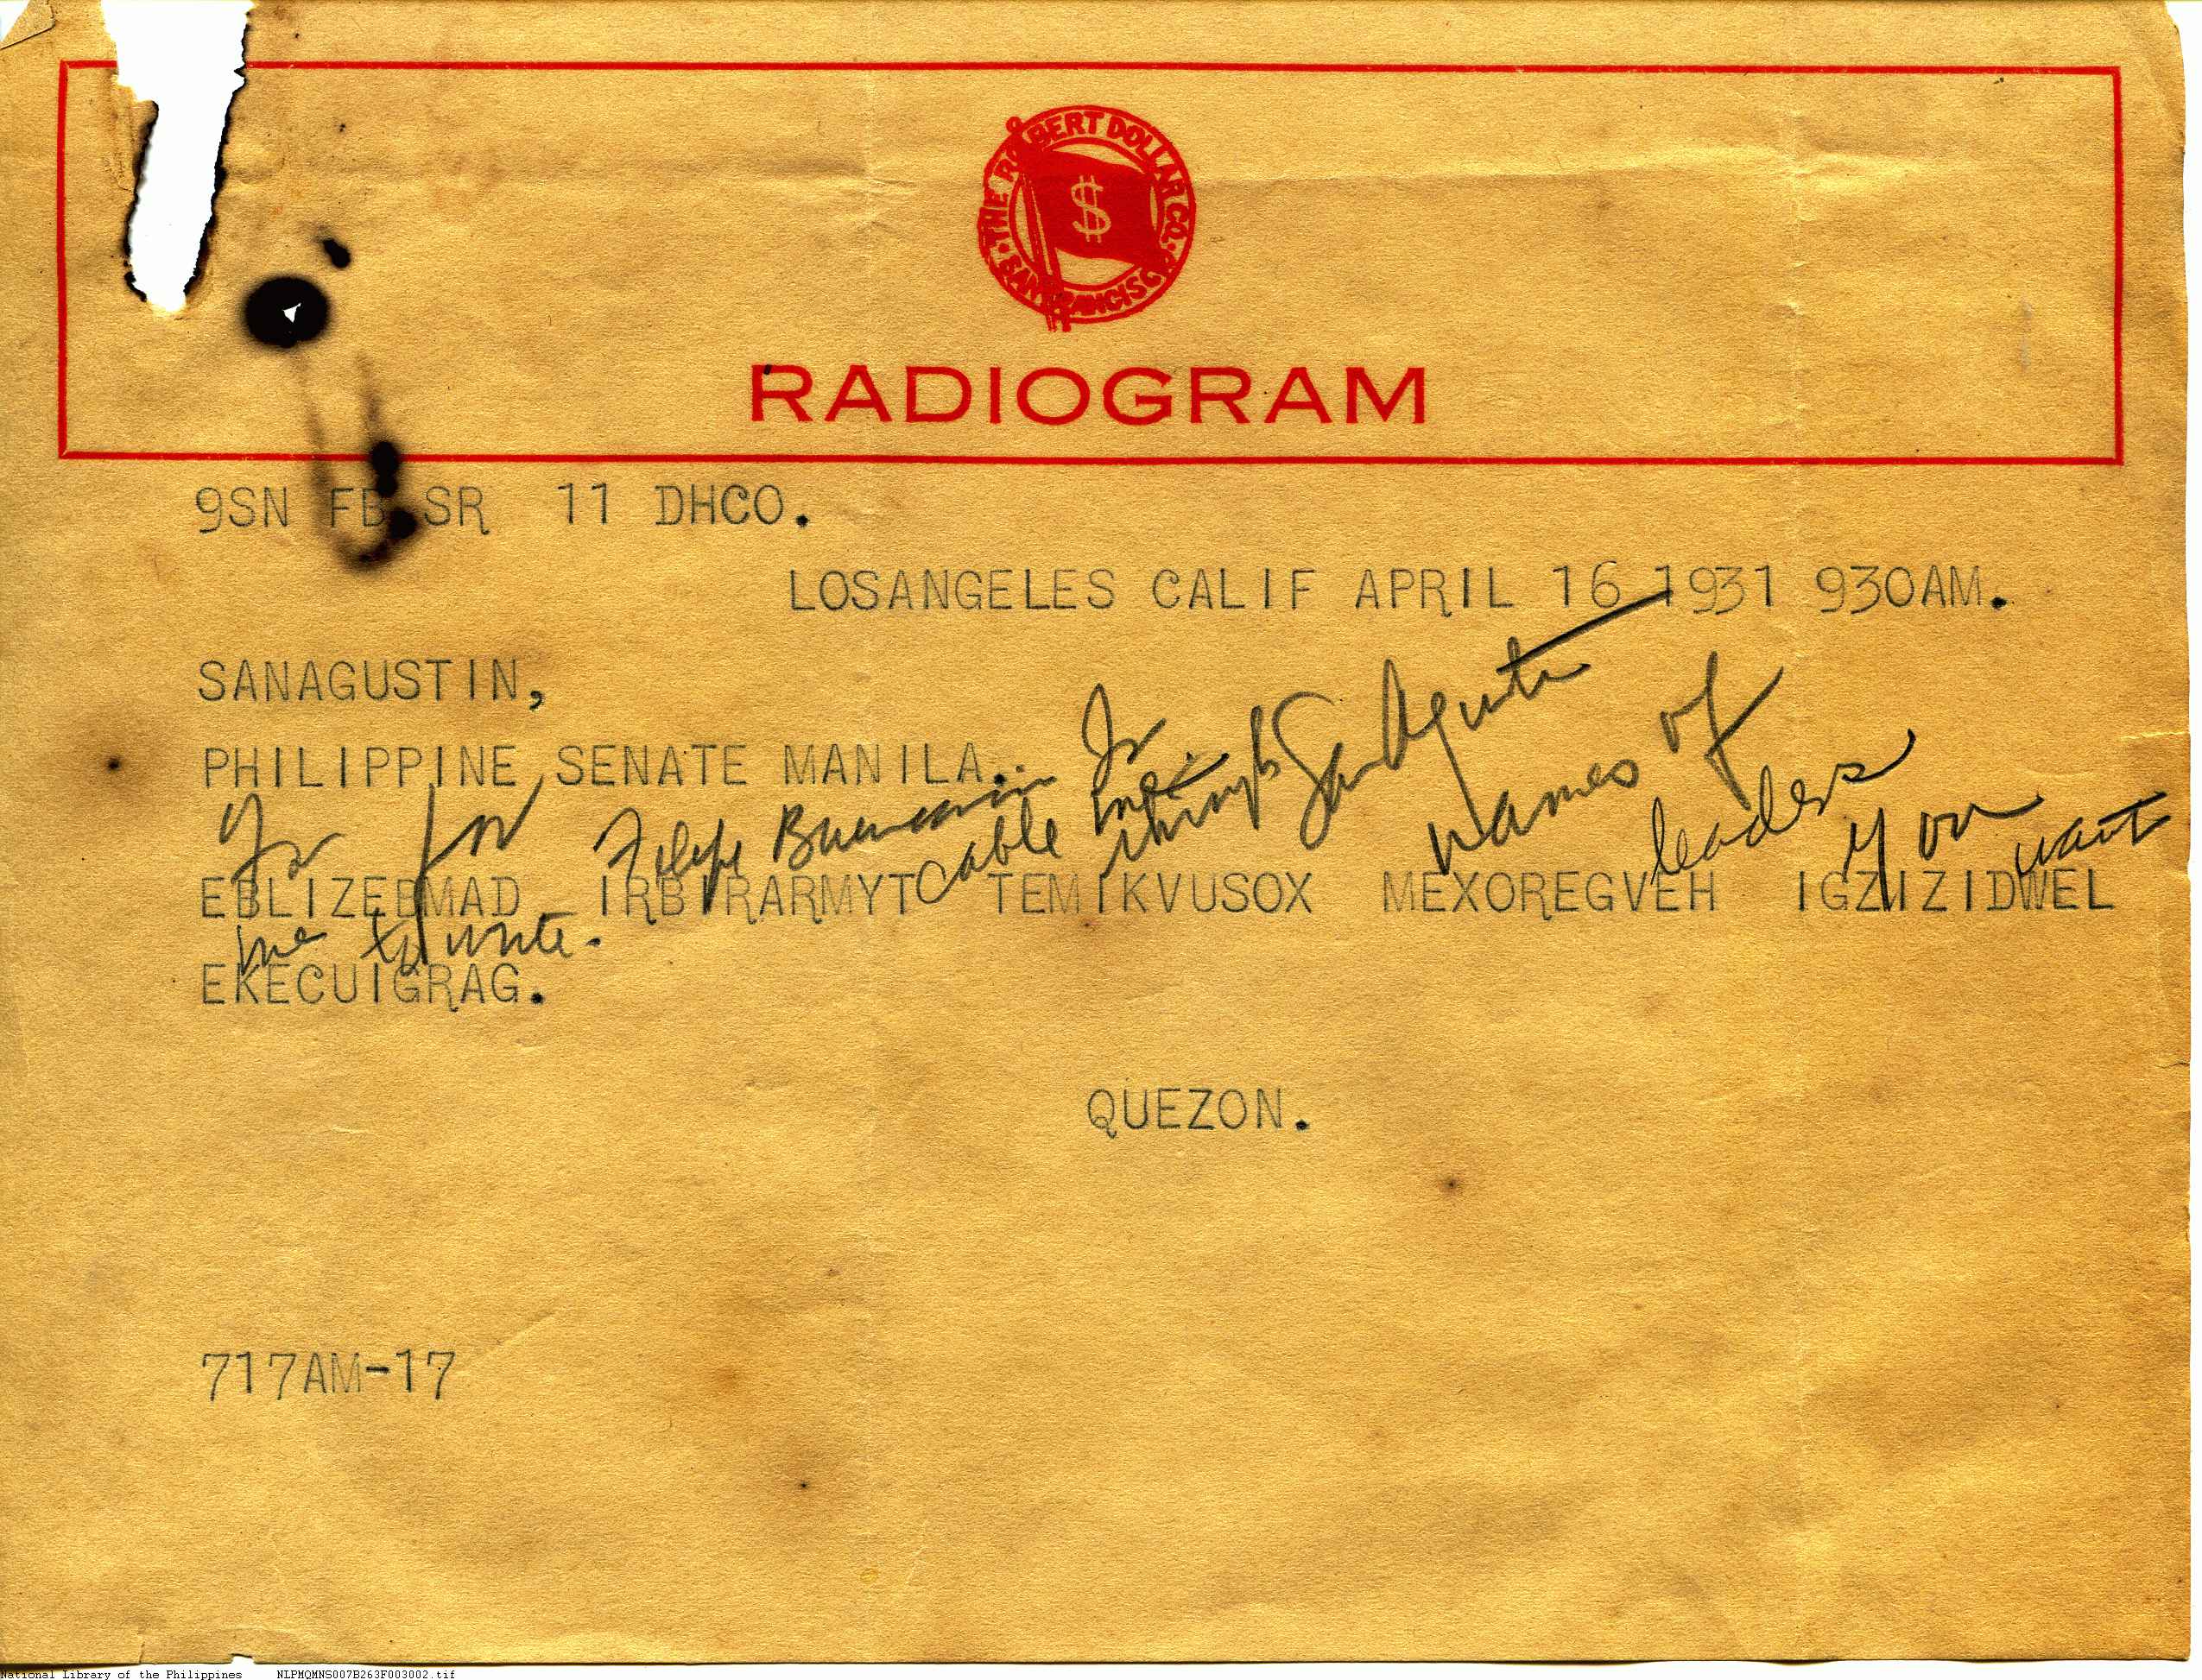 THE ROBERT DOLLAR CO. SAN FRANCISCO
$
RADIOGRAM
9SN FB SR 11 DHCO.
LOSANGELES CALIF APRIL 16 1931 930AM.
SANAGUSTIN,
PHILIPPINE SENATE MANILA.
for Felipe Buencamino Jr cable me San Agustin names of leaders you want
EBLIZEBMAD IRBIRARMYT TEMIKVUSOX MEXOREGVEH IGZIZIDWEL
me to write.
EKECUIGRAG.
QUEZON.
717AM-17
National Library of the Philippines NLPMQMNS007B263F003002.tif